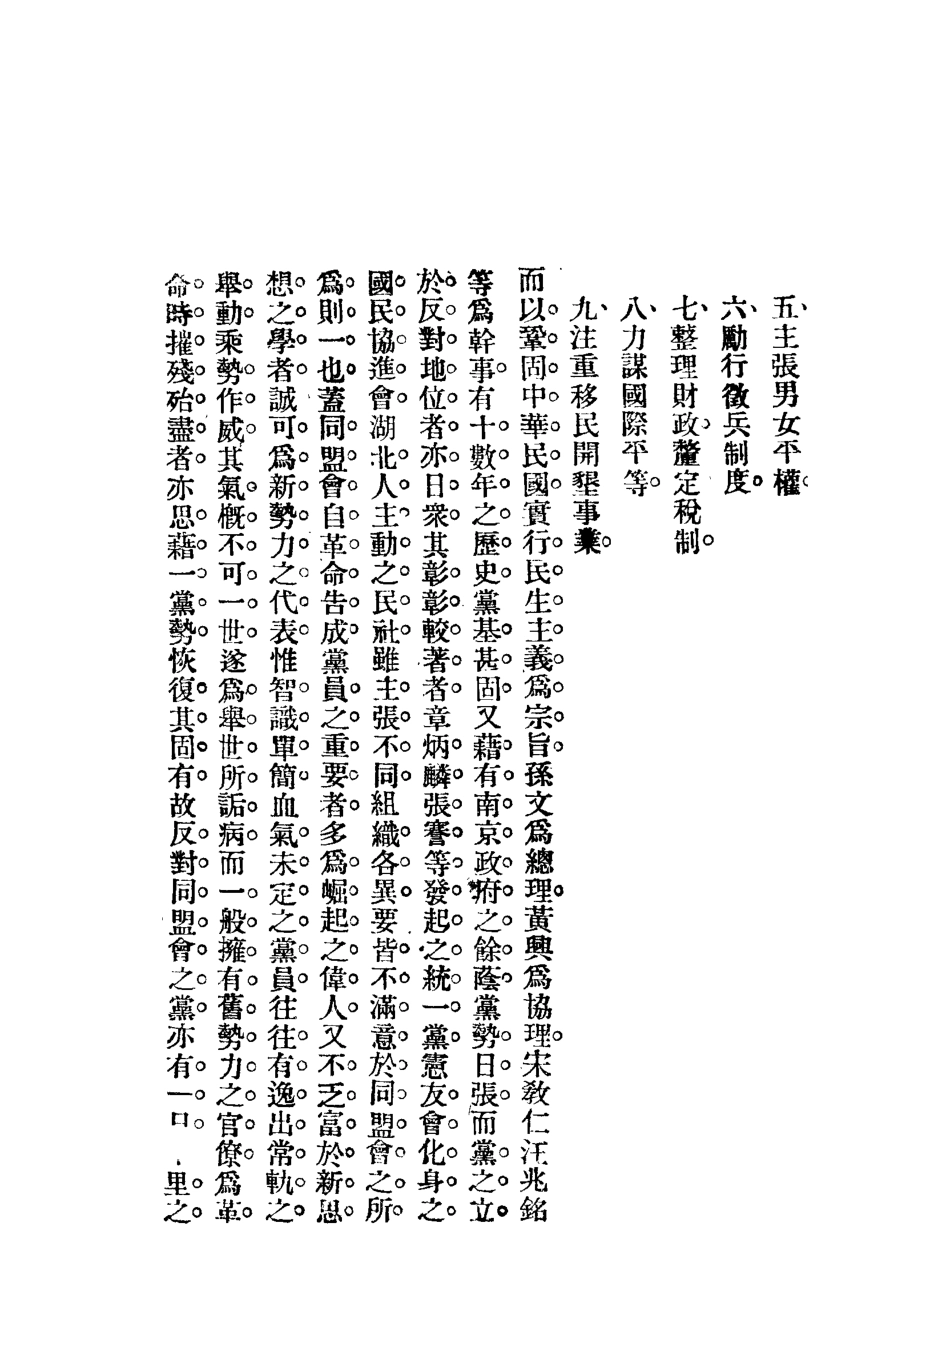 五、主張男女平權。
六、勵行徵兵制度。
七、整理財政、釐定稅制。
八、力謀國際平等。
九、注重移民開墾事業。
而以鞏固中華民國實行民生主義爲宗旨。孫文爲總理。黃興爲協理。宋敎仁汪兆銘
等爲幹事。有十數年之歷史。黨基甚固。又藉有南京政府之餘蔭。黨勢日張。而黨之立
於反對地位者亦日衆。其彰彰較著者。章炳麟張謇等發起之統一黨。憲友會化身之
國民協進會。湖北人主動之民社。雖主張不同。組織各異。要皆不滿意於同盟會之所
爲則一也。蓋同盟會自革命告成。黨員之重要者。多爲崛起之偉人。又不乏富於新思
想之學者。誠可爲新勢力之代表。惟智識單簡血氣未定之黨員。往往有逸出常軌之
舉動。乘勢作威。其氣概不可一世。遂爲舉世所詬病。而一般擁有舊勢力之官僚。爲革
命時摧殘殆盡者。亦思藉一黨勢恢復其固有。故反對同盟會之黨。亦有一日 里之